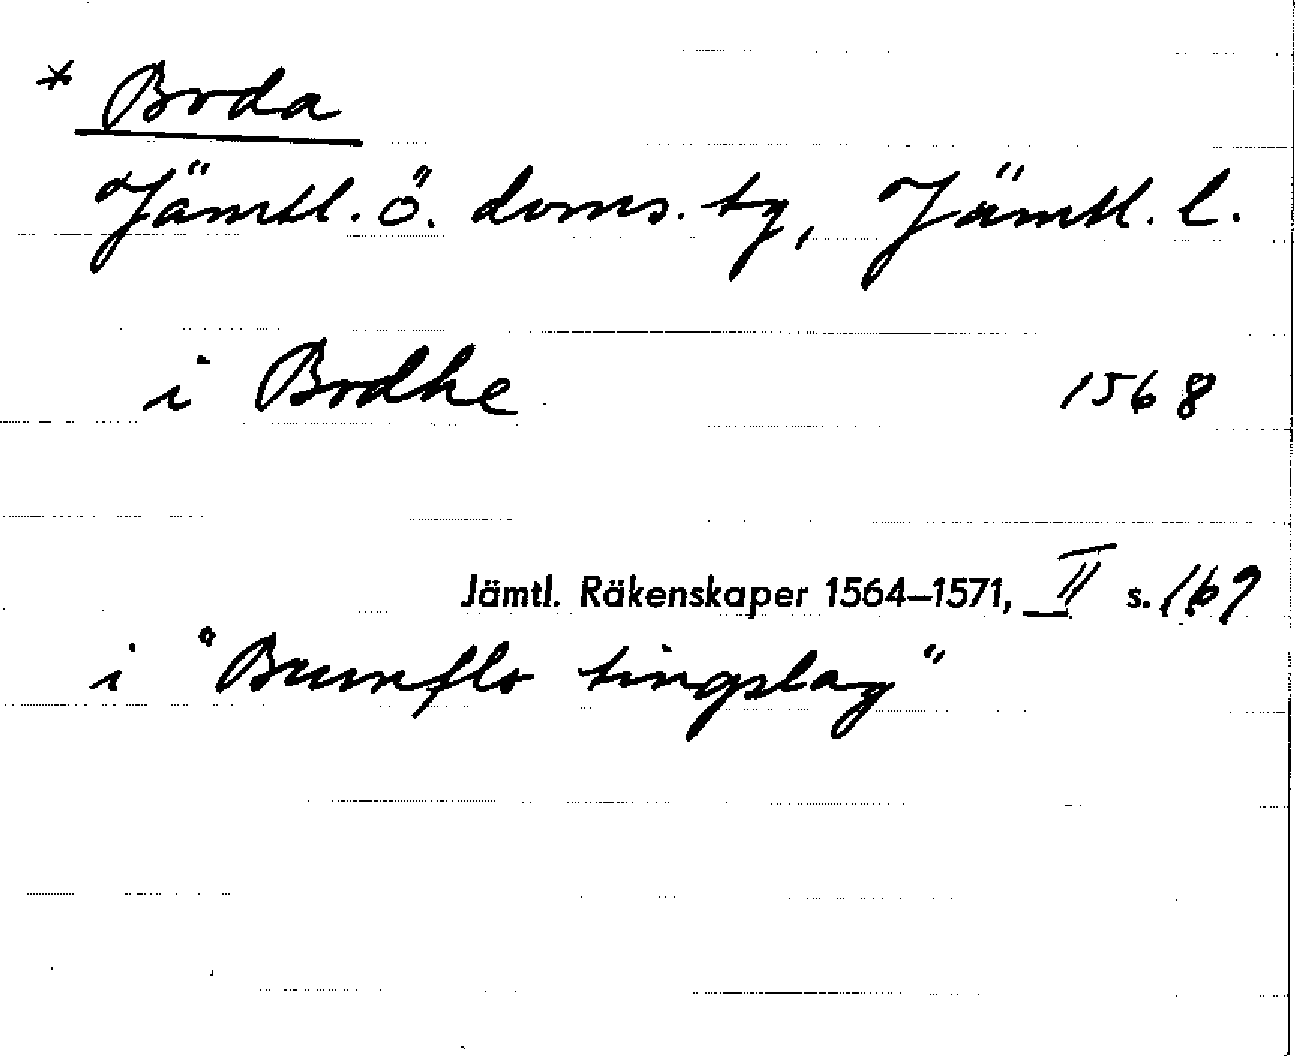 * Boda
Jämtl. ö. doms. tg, Jämtl. l.
i Bodhe 1568
Jämtl. Räkenskaper 1564–1571, II s. 169
i "Brunflo tingslag"